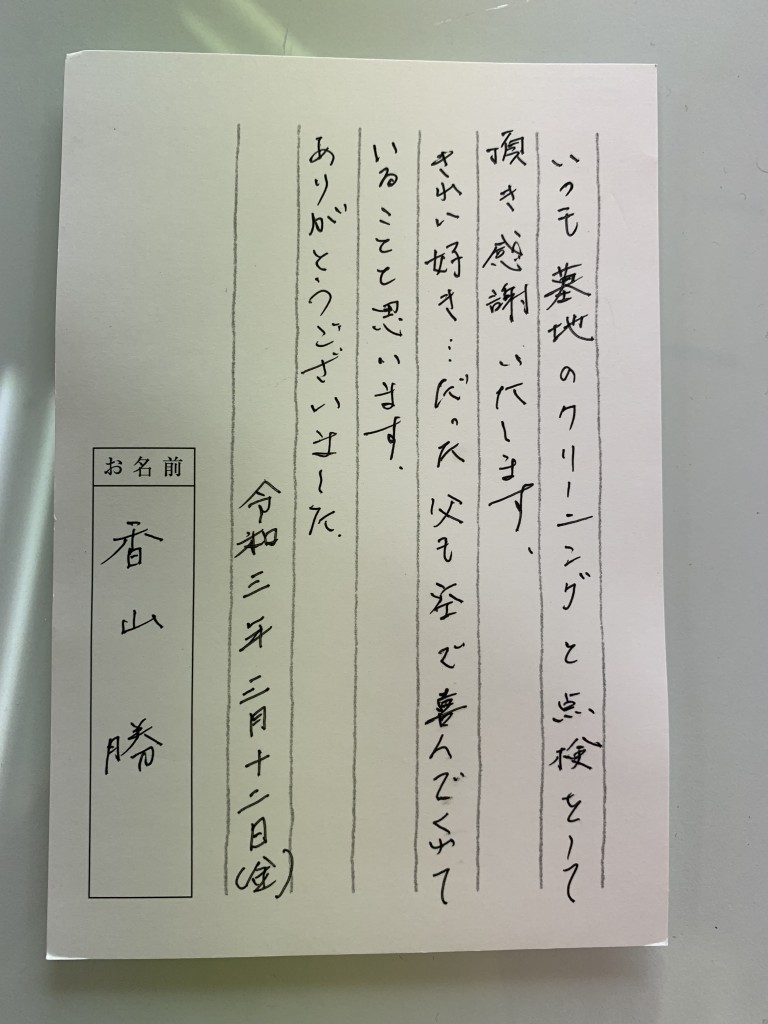 いつも墓地のクリーニングと点検をして
頂き感謝いたします、
きれい好き…だった父も空で喜んでくれて
いることと思います、
ありがとうございました、
令和三年三月十二日(金)
お名前
香山勝